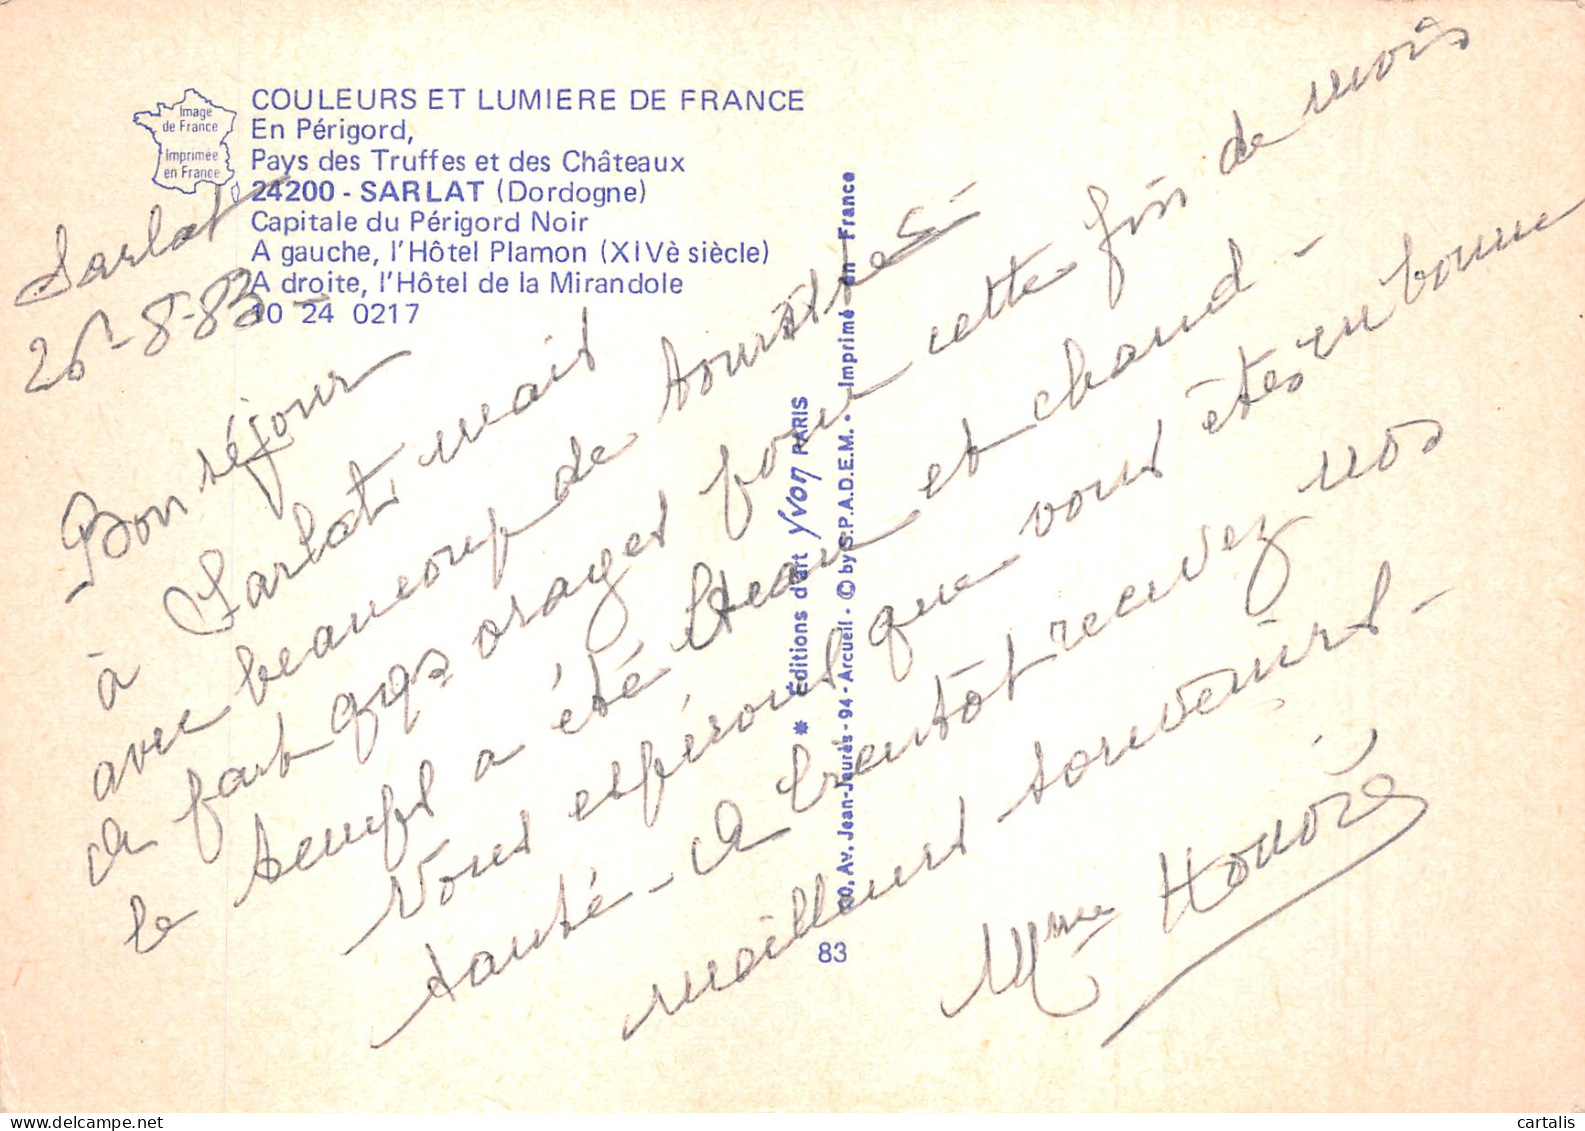 Image
de France
Imprimée
en France
COULEURS ET LUMIERE DE FRANCE
En Périgord,
Pays des Truffes et des Châteaux
24200 - SARLAT (Dordogne)
Capitale du Périgord Noir
A gauche, l'Hôtel Plamon (XIVè siècle)
A droite, l'Hôtel de la Mirandole
10 24 0217
Sarlat
26-8-83-
Bon séjour
à Sarlat mais
avec beaucoup de touristes
et fait qqs orages pour cette fin de mois
le temps a été beau et chaud -
Nous espérons que vous êtes en bonne
santé - A bientôt recevez nos
meilleurs souvenirs -
Mme Honoré
* Éditions d'art yvon PARIS
Av. Jean-Jaurès - 94 - Arcueil - © by S.P.A.D.E.M. - Imprimé en France
83
cartalis